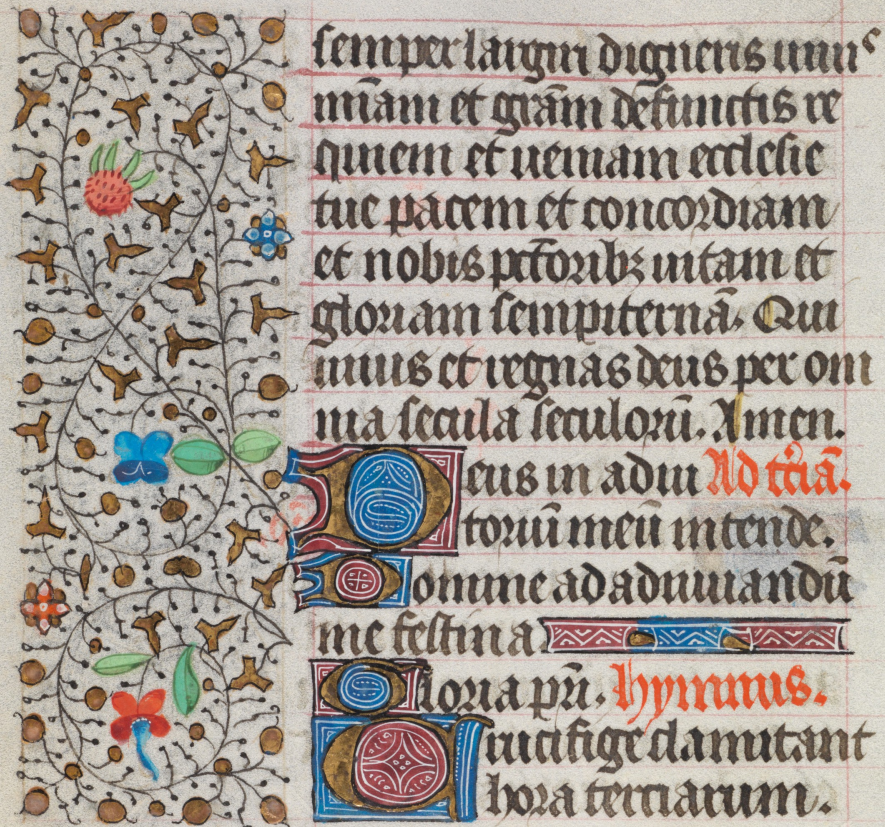 semper largiri digneris uiuis
miām et grām defunctis re
quiem et ueniam ecclesie
tue pacem et concordiam
et nobis pctōribꝫ uitam et
gloriam sempiternā. Qui
uiuis et regnas deus per om
nia secula seculorū. Amen.
Deus in adiu Ad tciā.
toriū meū intende.
Domine ad adiuuandū
me festina
Gloria pri. hymnus.
Crucifige clamitant
hora terciarum.